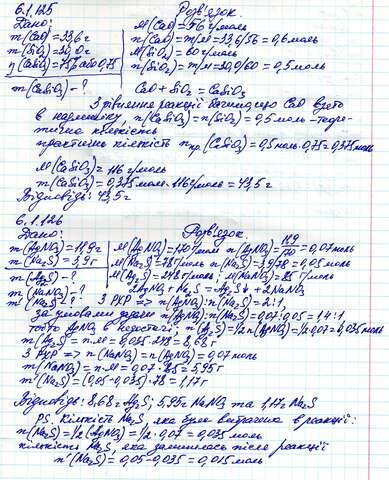 6.1.125 Розв'язок
Дано: M(CaO)=56 г/моль
m(CaO)=33,6г n(CaO)=m/M=33,6/56=0,6моль
m(SiO₂)=30,0г M(SiO₂)=60г/моль
η(CaSiO₃)=75% або 0,75 n(SiO₂)=m/M=30,0/60=0,5моль
m(CaSiO₃)-? CaO+SiO₂=CaSiO₃
З рівняння реакції бачимо, що CaO взято
в надлишку, n(CaSiO₃)=n(SiO₂)=0,5 моль - теоре-
тична кількість
практична кількість nпр(CaSiO₃)=0,5моль·0,75=0,375моль
M(CaSiO₃)=116 г/моль
m(CaSiO₃)=0,375моль·116г/моль=43,5г
Відповідь: 43,5г
6.1.126
Дано: Розв'язок.
m(AgNO₃)=11,9г M(AgNO₃)=170г/моль n(AgNO₃)=11,9/170=0,07моль
m(Na₂S)=3,9г M(Na₂S)=78г/моль n(Na₂S)=3,9/78=0,05моль
m(Ag₂S)-? M(Ag₂S)=248г/моль; M(NaNO₃)=85г/моль
m(NaNO₃)-? 2AgNO₃+Na₂S=Ag₂S↓+2NaNO₃
m'(Na₂S)-? З РХР => n(AgNO₃):n(Na₂S)=2:1,
за умовами задачі n(AgNO₃):n(Na₂S)=0,07:0,05=1,4:1
тобто AgNO₃ в недостачі, n(Ag₂S)=1/2n(AgNO₃)=1/2·0,07=0,035моль
m(Ag₂S)=n·M=0,035·248=8,68г
З РХР => n(NaNO₃)=n(AgNO₃)=0,07моль
m(NaNO₃)=n·M=0,07·85=5,95г
m'(Na₂S)=(0,05-0,035)·78=1,17г
Відповідь: 8,68г Ag₂S; 5,95г NaNO₃ та 1,17г Na₂S
PS. Кількість Na₂S, яка була витрачена в реакції:
n(Na₂S)=1/2(AgNO₃)=1/2·0,07=0,035 моль
кількість Na₂S, яка залишилась після реакції
n'(Na₂S)=0,05-0,035=0,015моль